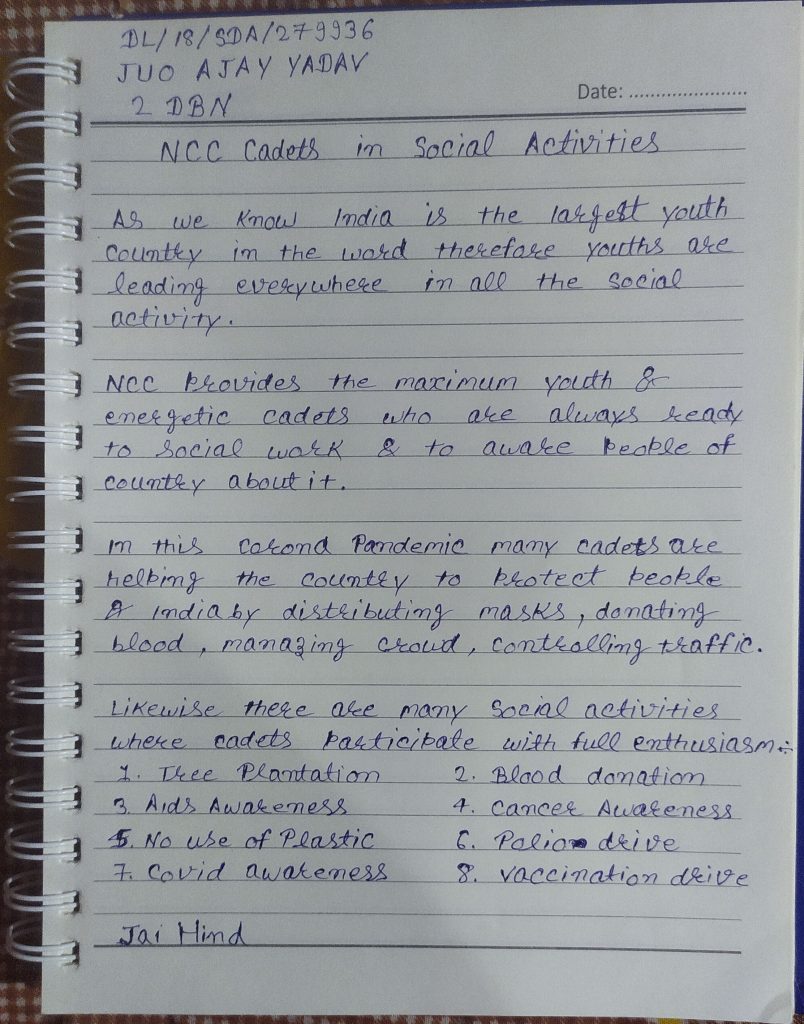 DL/18/SDA/279936
JUO AJAY YADAV
2 DBN
Date: ......................
NCC Cadets in Social Activities
As we know India is the largest youth
country in the word therefore youths are
leading everywhere in all the social
activity.
NCC provides the maximum youth &
energetic cadets who are always ready
to social work & to aware people of
country about it.
In this corond Pandemic many cadets are
helping the country to protect people
& india by distributing masks, donating
blood, managing crowd, controlling traffic.
Likewise there are many Social activities
where cadets participate with full enthusiasm:-
1. Tree Plantation 2. Blood donation
3. Aids Awareness 4. Cancer Awareness
5. No use of Plastic 6. Polio drive
7. Covid awareness 8. vaccination drive
Jai Hind